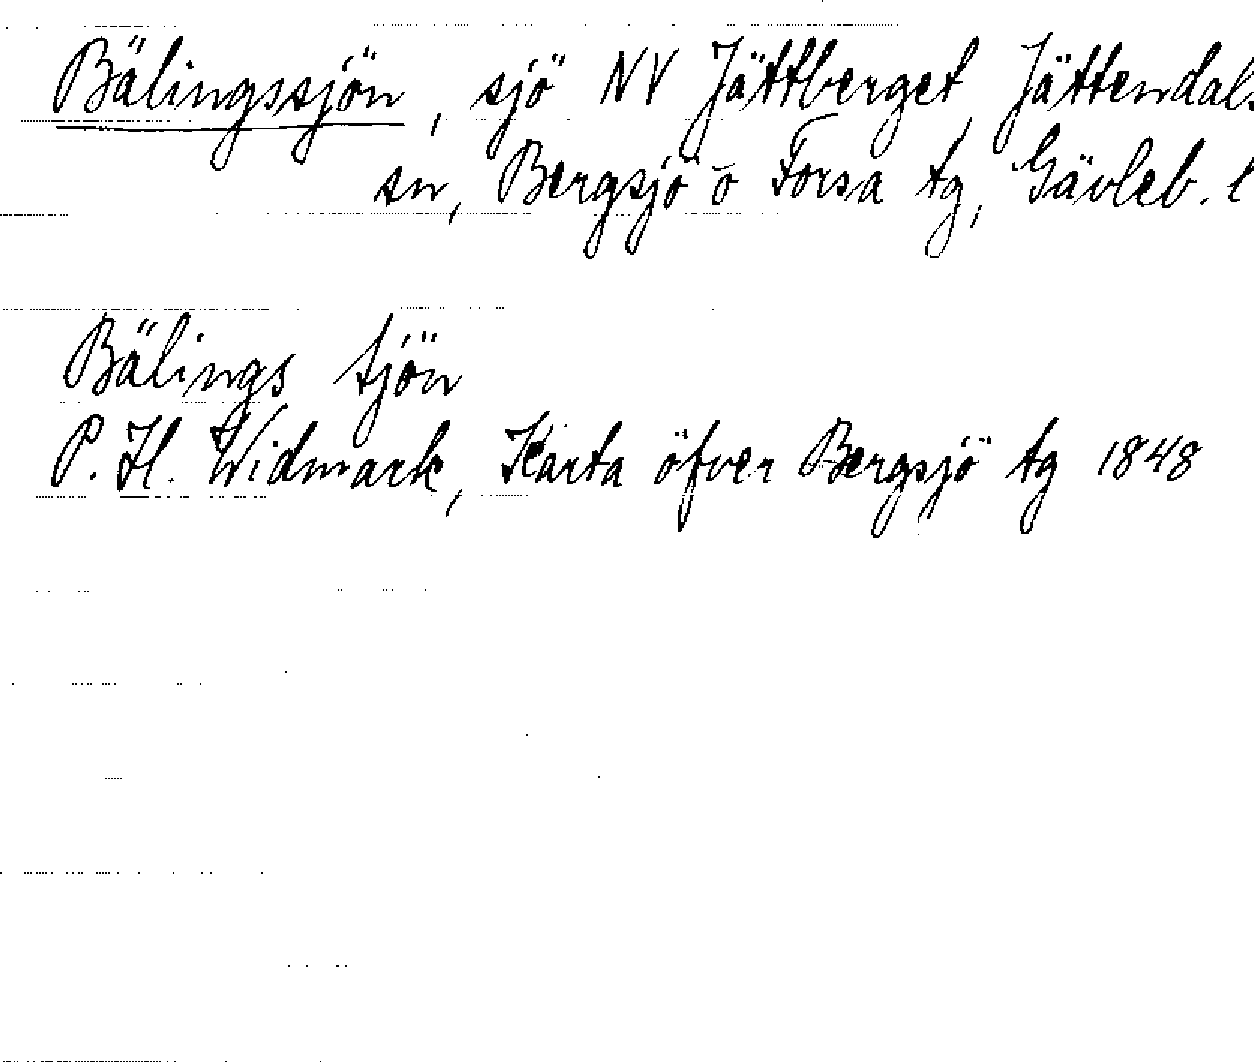 Bälingssjön, sjö NV Jättberget, Jättendals
sn, Bergsjö o Forsa tg, Gävleb. l
Bälings tjön
P. H. Widmark, Karta öfver Bergsjö tg 1848